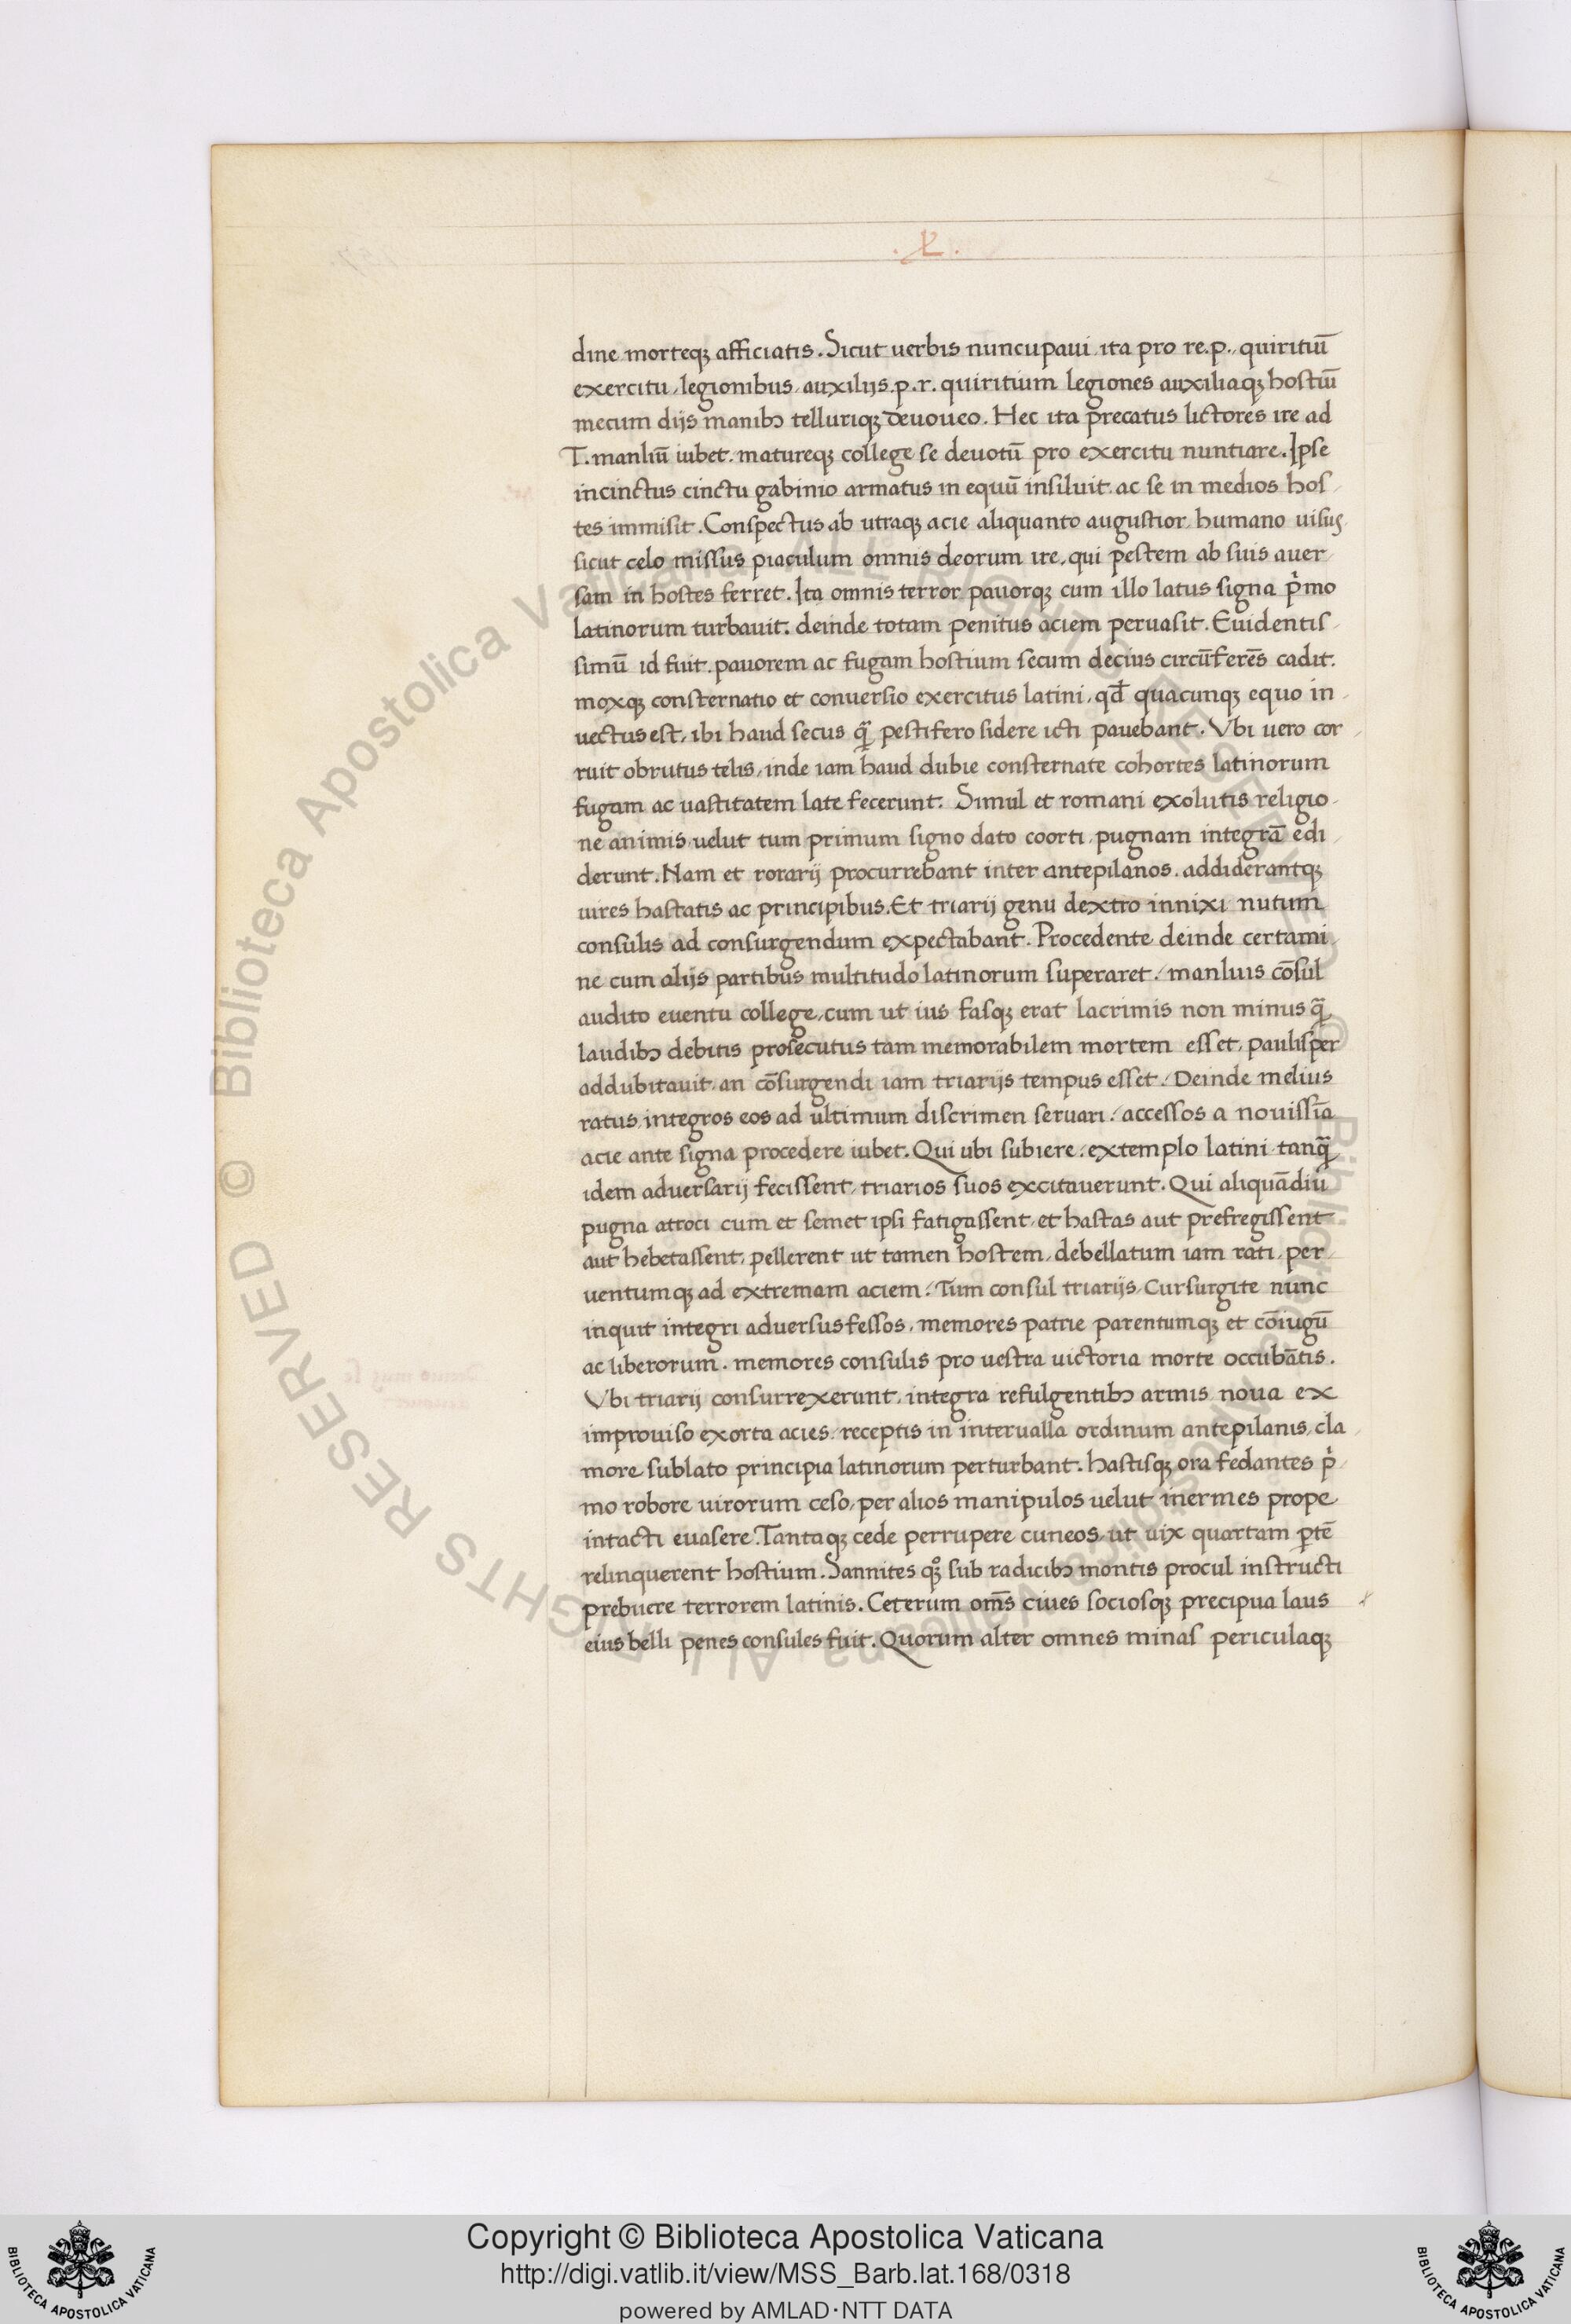 .L.
dine morteqꝫ afficiatis. Sicut uerbis nuncupaui ita pro re.p. quiritiū
exercitu, legionibus, auxilijs.p.r. quiritium legiones auxiliaqꝫ hostiū
mecum dijs manibꝰ telluriqꝫ deuoueo. Hec ita p̄catus lictores ire ad
T. manliū iubet. matureqꝫ college se deuotū pro exercitu nuntiare. Ipse
incinctus cinctu gabinio armatus in equū insiluit. ac se in medios hos-
tes immisit. Conspectus ab utraqꝫ acie aliquanto augustior humano uisus
sicut celo missus piaculum omnis deorum ire, qui pestem ab suis auer-
sam in hostes ferret. Ita omnis terror pauorqꝫ cum illo latus signa pͥmo
latinorum turbauit. deinde totam penitus aciem peruasit. Euidentis-
simū id fuit. pauorem ac fugam hostium secum decius circūferēs cadit.
moxqꝫ consternatio et conuersio exercitus latini, qđ quacunqꝫ equo in-
uectus est, ibi haud secus q̄ pestifero sidere icti pauebant. Vbi uero cor-
ruit obrutus telis, inde iam haud dubie consternate cohortes latinorum
fugam ac uastitatem late fecerunt. Simul et romani exolutis religio-
ne animis uelut tum primum signo dato coorti pugnam integrā edi-
derunt. Nam et rorarij procurrebant inter antepilanos. addiderantqꝫ
uires hastatis ac principibus. Et triarij genu dextro innixi nutum
consulis ad consurgendum expectabant. Procedente deinde certami-
ne cum alijs partibus multitudo latinorum superaret. manlius cōsul
audito euentu college, cum ut ius fasqꝫ erat lacrimis non minus q̄
laudibꝰ debitis prosecutus tam memorabilem mortem esset, paulisper
addubitauit an cōsurgendi iam triarijs tempus esset. Deinde melius
ratus integros eos ad ultimum discrimen seruari. accessos a nouissīa
acie ante signa procedere iubet. Qui ubi subiere. extemplo latini tanq̄
idem aduersarij fecissent, triarios suos excitauerunt. Qui aliquādiu
pugna atroci cum et semet ipsi fatigassent et hastas aut prefregissent
aut hebetassent, pellerent ut tamen hostem, debellatum iam rati, per-
uentumqꝫ ad extremam aciem. Tum consul triarijs, Cursurgite nunc
inquit integri aduersus fessos, memores patrie parentumqꝫ et cōiugū
ac liberorum. memores consulis pro uestra uictoria morte occubātis.
Vbi triarij consurrexerunt, integra refulgentibꝰ armis noua ex
improuiso exorta acies. receptis in interualla ordinum antepilanis, cla-
more sublato principia latinorum perturbant. hastisqꝫ ora fedantes pͥ-
mo robore uirorum ceso, per alios manipulos uelut inermes prope
intacti euasere. Tantaqꝫ cede perrupere cuneos, ut uix quartam ꝑtē
relinquerent hostium. Sannites qꝫ sub radicibꝰ montis procul instructi
prebuere terrorem latinis. Ceterum om̄s ciues sociosqꝫ precipua laus
eius belli penes consules fuit. Quorum alter omnes minas periculaqꝫ
© Biblioteca Apostolica Vaticana ALL RIGHTS RESERVED
© Biblioteca Apostolica Vaticana ALL RIGHTS RESERVED
Copyright © Biblioteca Apostolica Vaticana
http://digi.vatlib.it/view/MSS_Barb.lat.168/0318
powered by AMLAD·NTT DATA
BIBLIOTECA APOSTOLICA VATICANA
BIBLIOTECA APOSTOLICA VATICANA